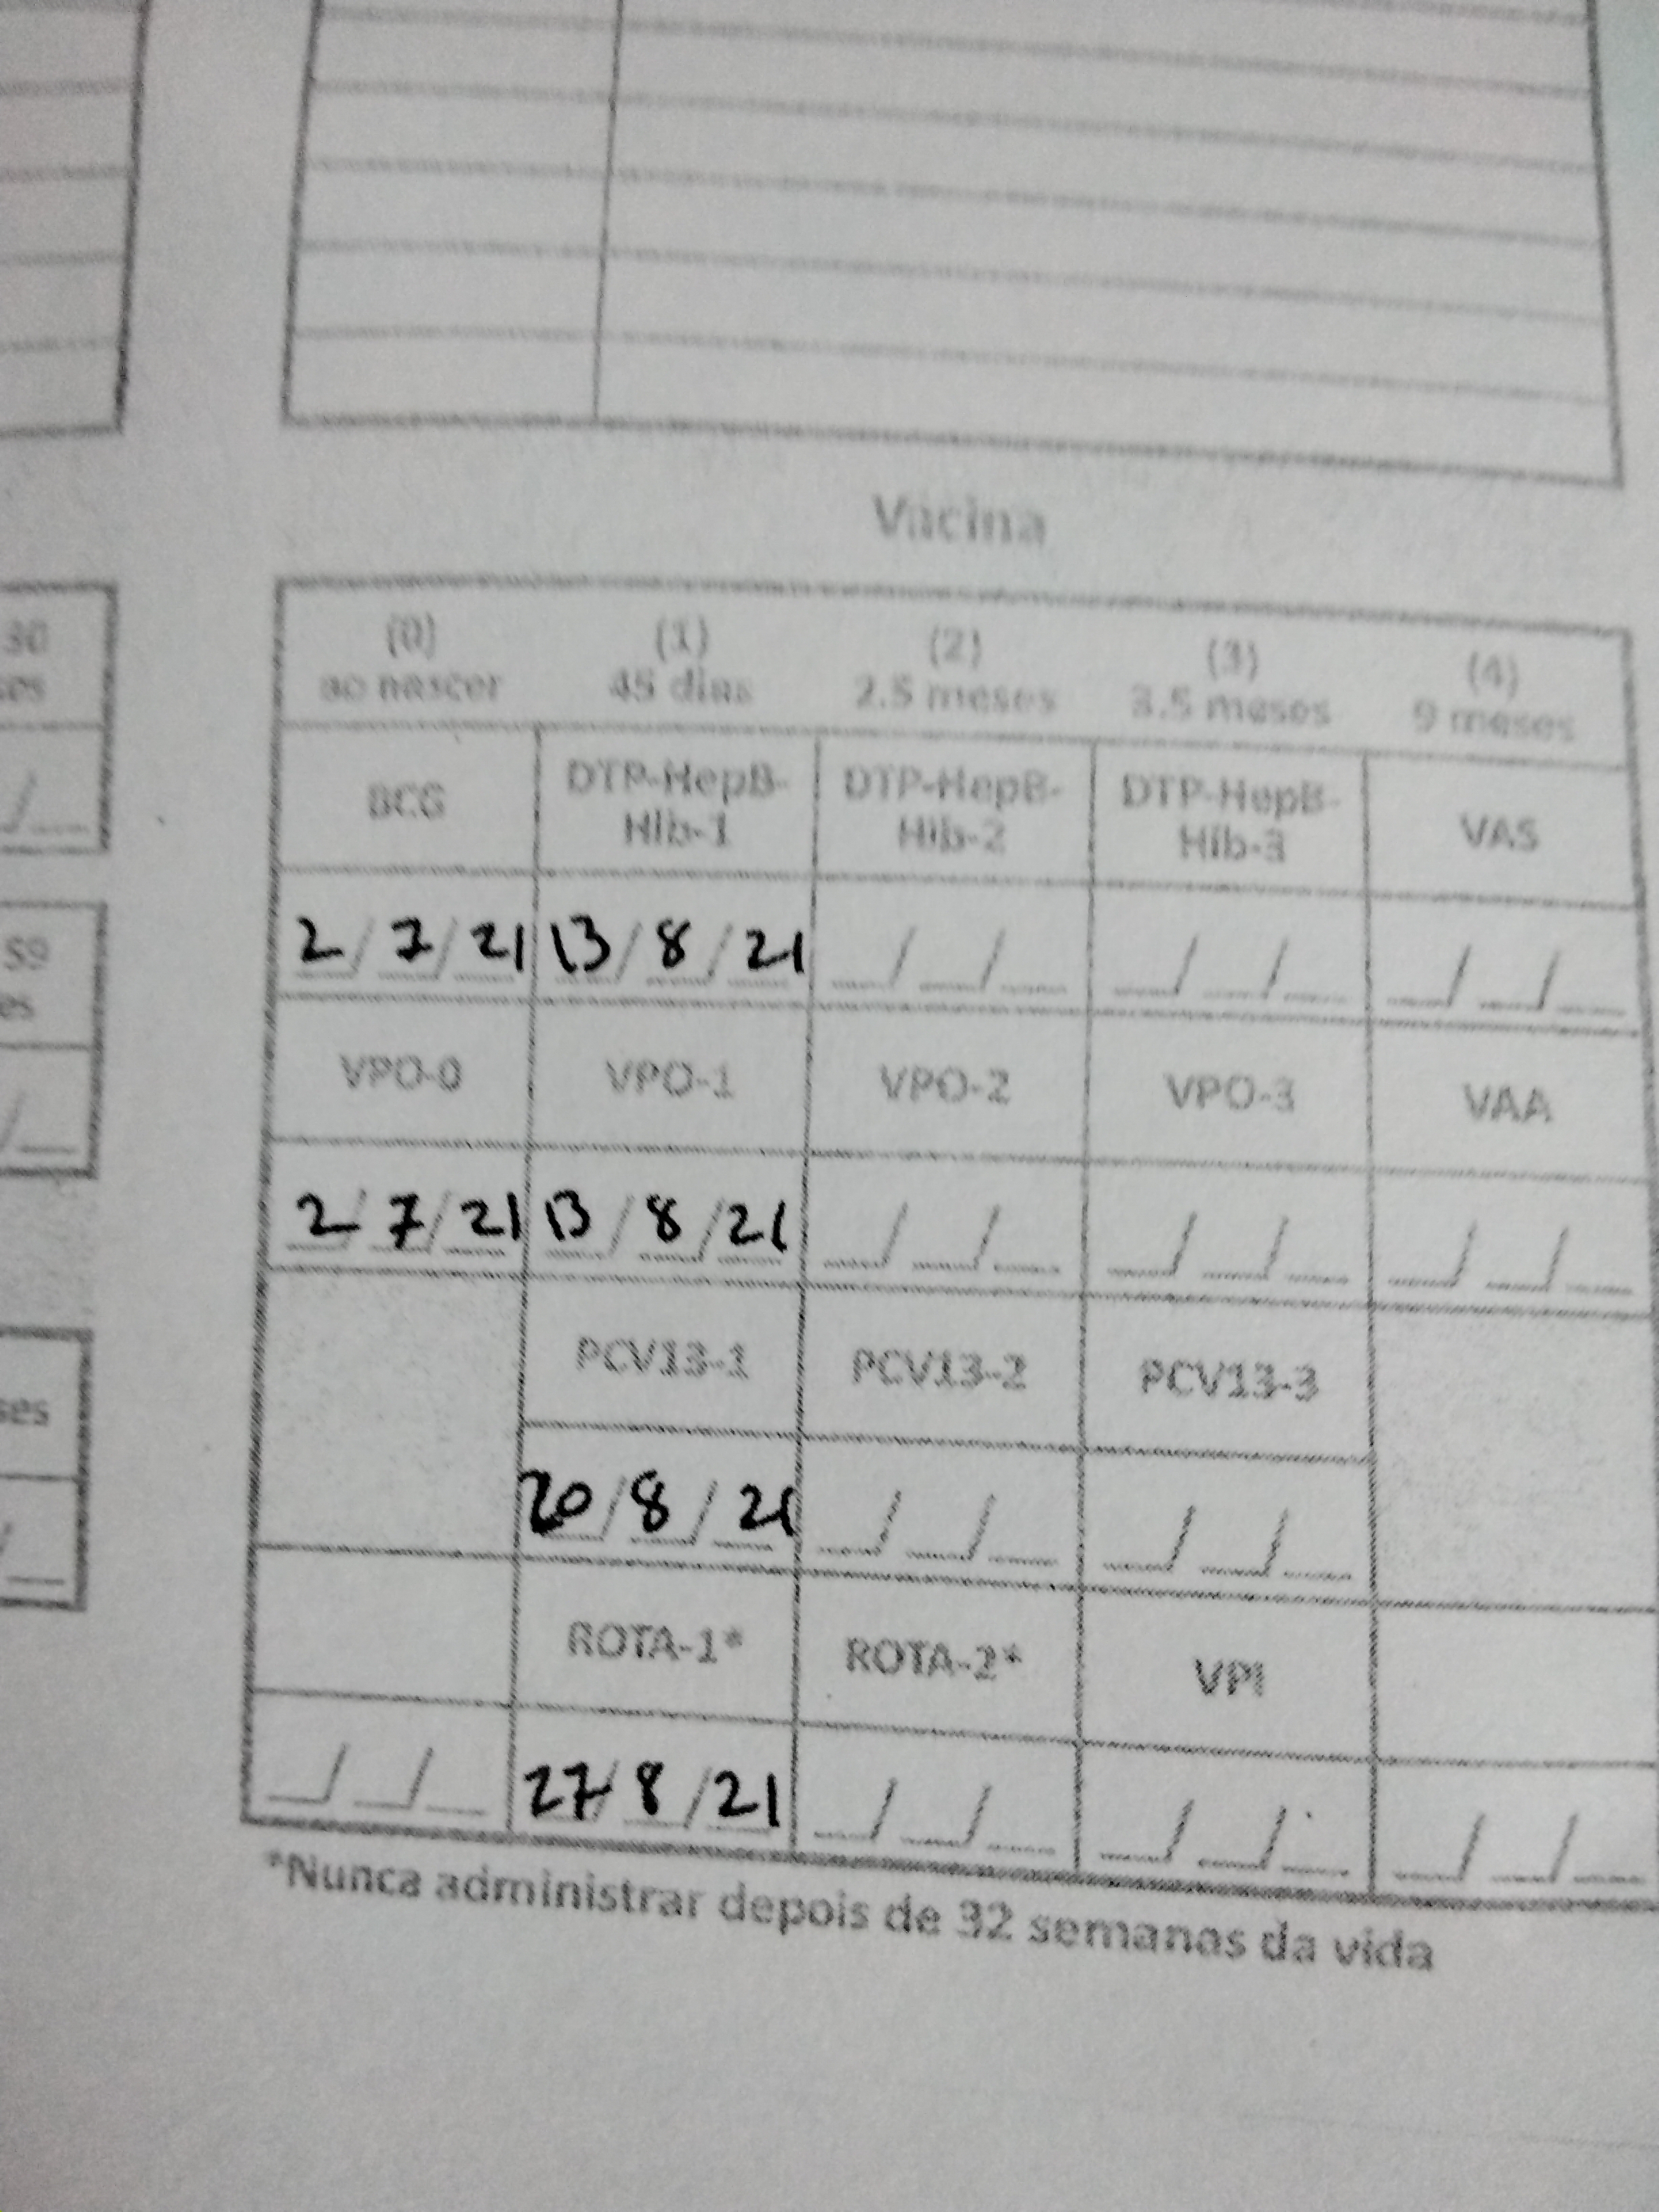 Vacina
(0) (1) (2) (3) (4)
ao nascer 45 dias 2.5 meses 3.5 meses 9 meses
BCG DTP-HepB-Hib-1 DTP-HepB-Hib-2 DTP-HepB-Hib-3 VAS
2/7/21 13/8/21 __/__/__ __/__/__ __/__/__
VPO-0 VPO-1 VPO-2 VPO-3 VAA
2/7/21 13/8/21 __/__/__ __/__/__ __/__/__
PCV13-1 PCV13-2 PCV13-3
20/8/21 __/__/__ __/__/__
ROTA-1* ROTA-2* VPI
__/__/__ 27/8/21 __/__/__ __/__/__ __/__/__
*Nunca administrar depois de 32 semanas da vida
30
59